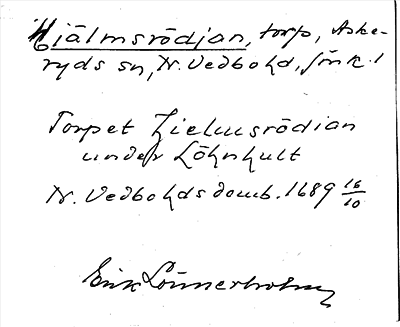 Hjälmsrödjan, torp, Aske-
ryds sn, N. Vedbo hd, Jönk. l
Torpet Hielmsrödian
under Löhnhult
N. Vedbo hds domb. 1689 16/10
Erik Lönnerholm